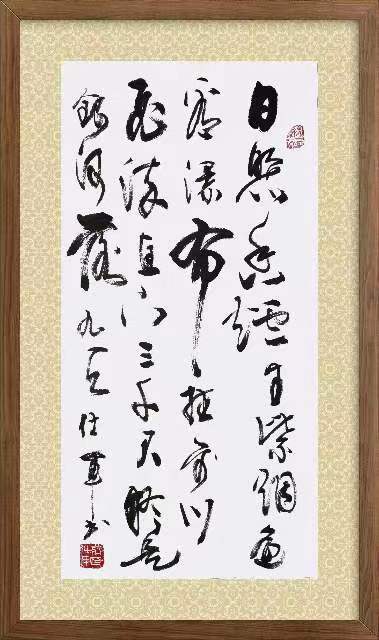 日照香爐生紫烟遥
看瀑布挂前川
飛流直下三千尺疑是
銀河落九天仕书